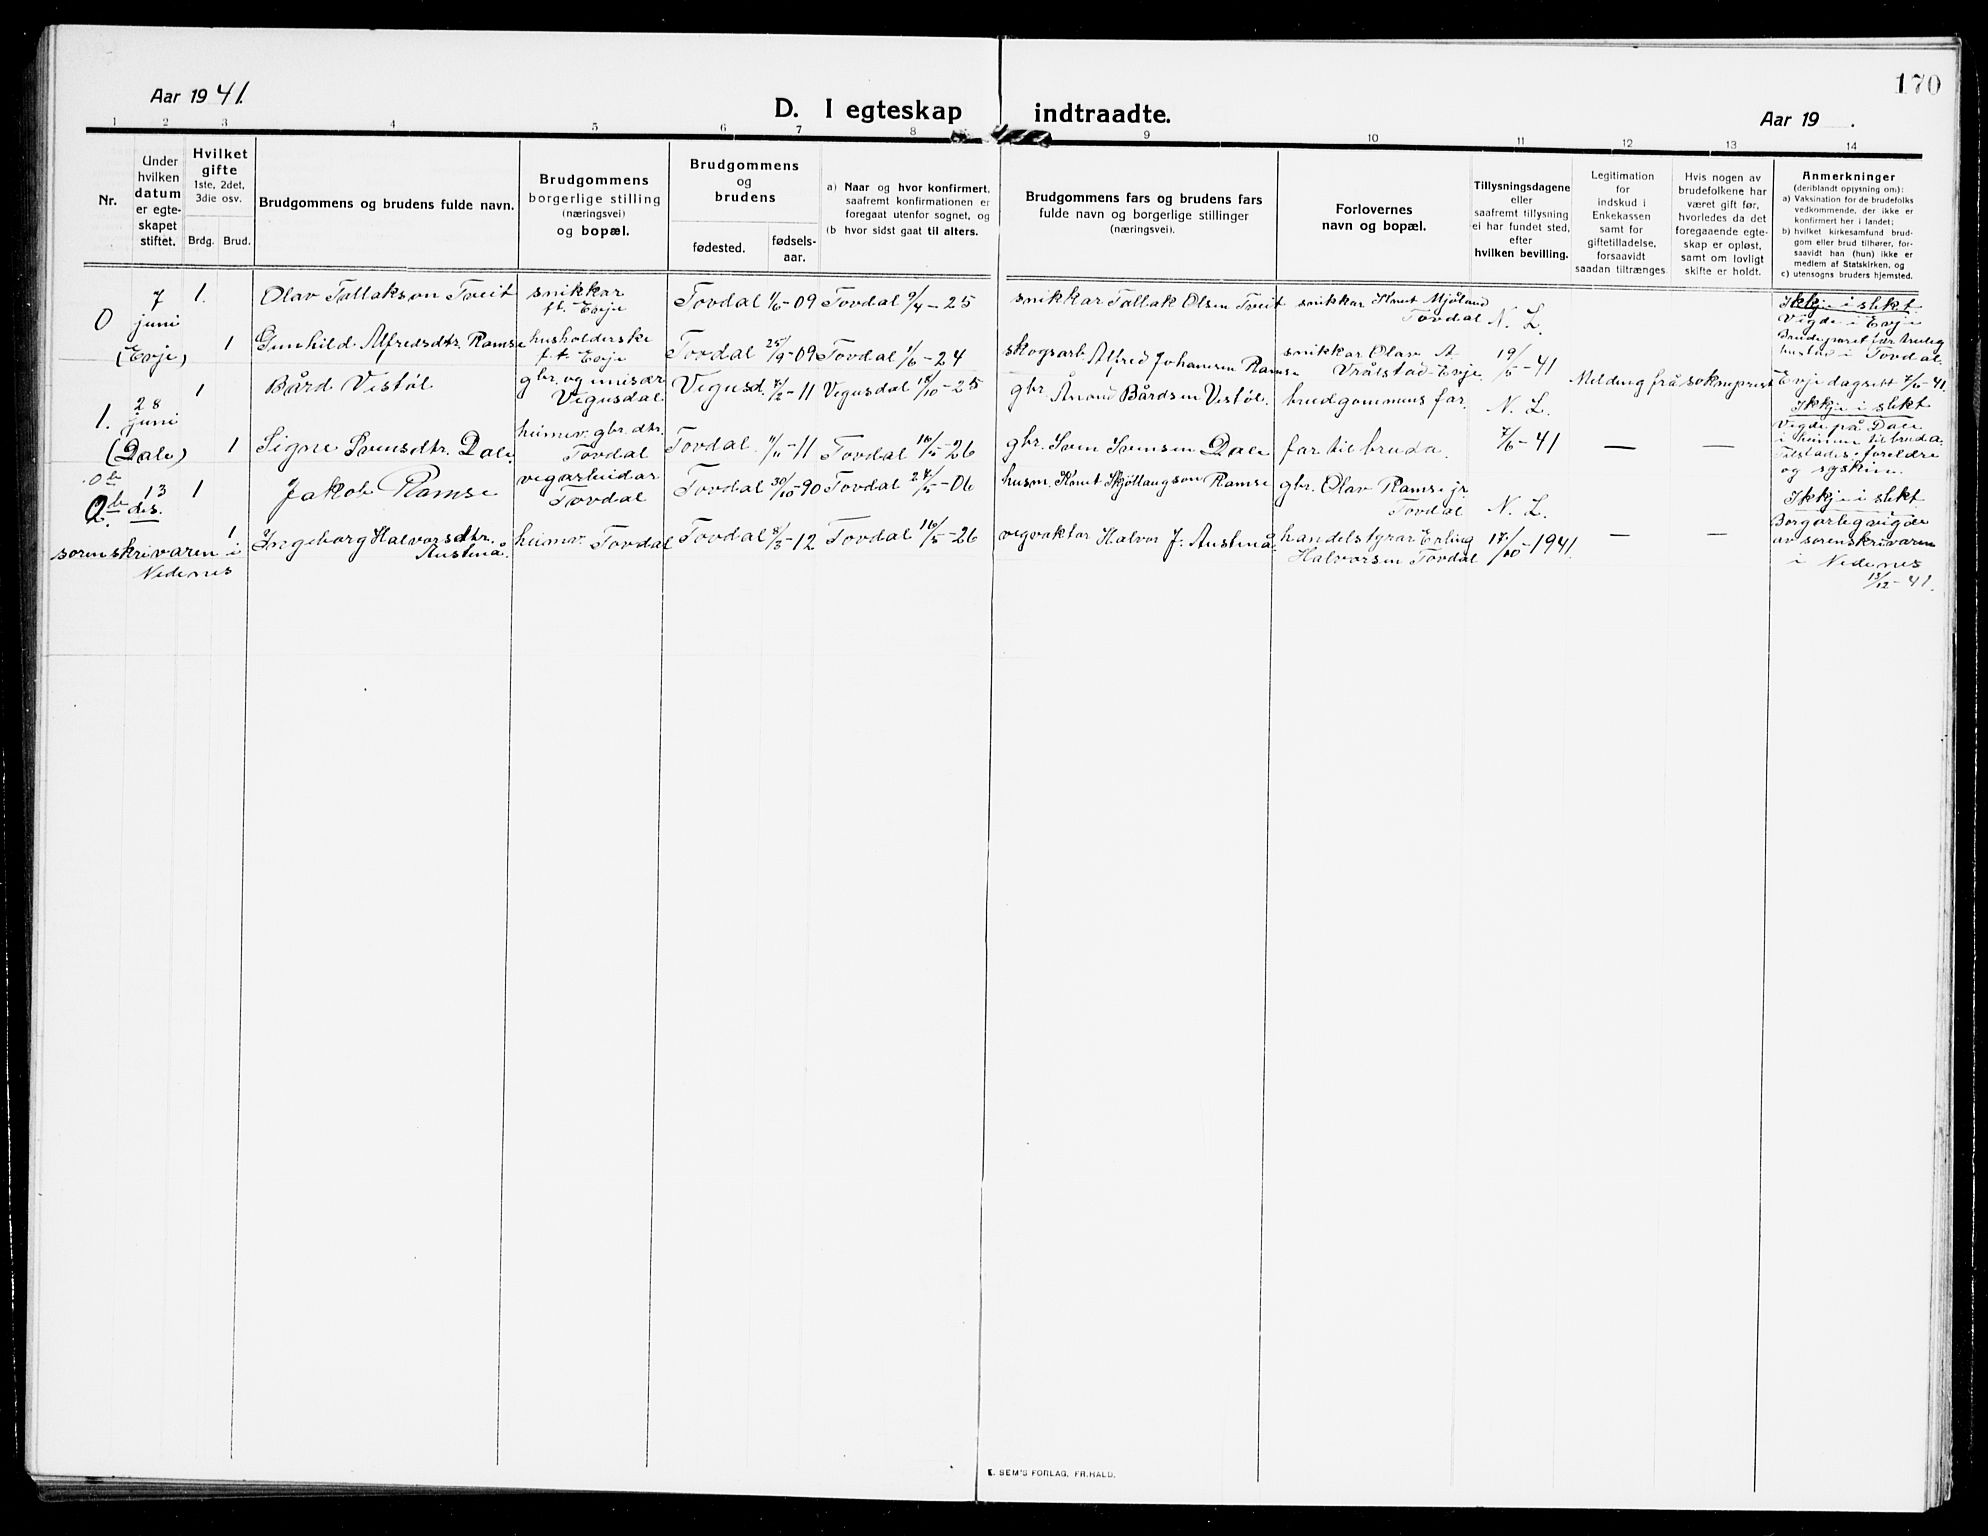 170
Aar 1941.
D. I egteskap indtraadte.
Aar 19   .
1 2 3 4 5 6 7 8 9 10 11 12 13 14
Nr.
Under
hvilken
datum
er egte-
skapet
stiftet.
Hvilket
gifte
1ste, 2det,
3die osv.
Brdg. Brud.
Brudgommens og brudens fulde navn.
Brudgommens
borgerlige stilling
(næringsvei)
og bopæl.
Brudgommens
og
brudens
fødested.
fødsels-
aar.
a) Naar og hvor konfirmert,
saafremt konfirmationen er
foregaat utenfor sognet, og
(b hvor sidst gaat til alters.
Brudgommens fars og brudens fars
fulde navn og borgerlige stillinger
(næringsvei).
Forlovernes
navn og bopæl.
Tillysningsdagene
eller
saafremt tillysning
ei har fundet sted,
efter
hvilken bevilling.
Legitimation
for
indskud i
Enkekassen
samt for
giftetilladelse,
forsaavidt
saadan tiltrænges.
Hvis nogen av
brudefolkene har
været gift før,
hvorledes da det
foregaaende egte-
skap er opløst,
samt om lovligt
skifte er holdt.
Anmerkninger
(deriblandt opysning om):
a) Vaksination for de brudefolks
vedkommende, der ikke er
konfirmert her i landet;
b) hvilket kirkesamfund brud-
gom eller brud tilhører, for-
saavidt han (hun) ikke er
medlem af Statskirken, og
c) utensogns bruders hjemsted.
0
7
juni
(Evje)
1.
Olav Tallakson Tveit
snikkar
f.t. Evje
Tovdal 1/6-09 Tovdal 9/4-25
snikkar Tallak Olsen Tveit
snikkar Knut Mjåland
Tovdal
N. L.
Ikkje i slekt
Vigde i Evje
1
Gunhild Alfredsdtr. Ramse
husholderske
f.t. Evje
Tovdal 25/9-09 Tovdal 1/6-24
skogsarb. Alfred Johannsen Ramse
snikkar Olav A.
Vråtstad-Evje
19/5-41
i Tovdal.
Melding frå sokneprest Evje dagsett 7/6-41
1.
28
juni
(Dale)
1
Bård Vestøl
Vegusdal.
Vegusd. 7/2-11 Vegusdal 18/10-25
gbr. Ånund Bårdsen Vestøl.
brudgommens far.
N. L.
Ikkje i slekt
Vigde på Dale
i heimen til bruda.
Tilstades: foreldre
og syskin.
1
Signe Svensdtr. Dale.
heimev. gbr. dtr.
Tovdal
Tovdal. 11/11-11 Tovdal 16/5-26
gbr. Sven Svensen Dale
far til bruda.
7/6-41
—
—
13
des.
1
Jakob Ramse
vegarbeidar
Tovdal
Tovdal 30/10-90 Tovdal 27/5-06
husm. Knut Skjøttaugson Ramse
gbr. Olav Ramse jr.
Tovdal
N. L.
Ikkje i slekt
sorenskrivaren i
Nedenes
1
Ingeborg Halvorsdtr.
Austenå.
heimev. Tovdal
Tovdal 8/3-12 Tovdal 16/5-26
vegvaktar Halvor J. Austenå
handelstyrar Erling
Halvorsen Tovdal
17/10-1941.
—
—
Borgarleg vigde
av sorenskrivaren
i Nedenes
13/12-41.
E. SEM'S FORLAG, FR.HALD.